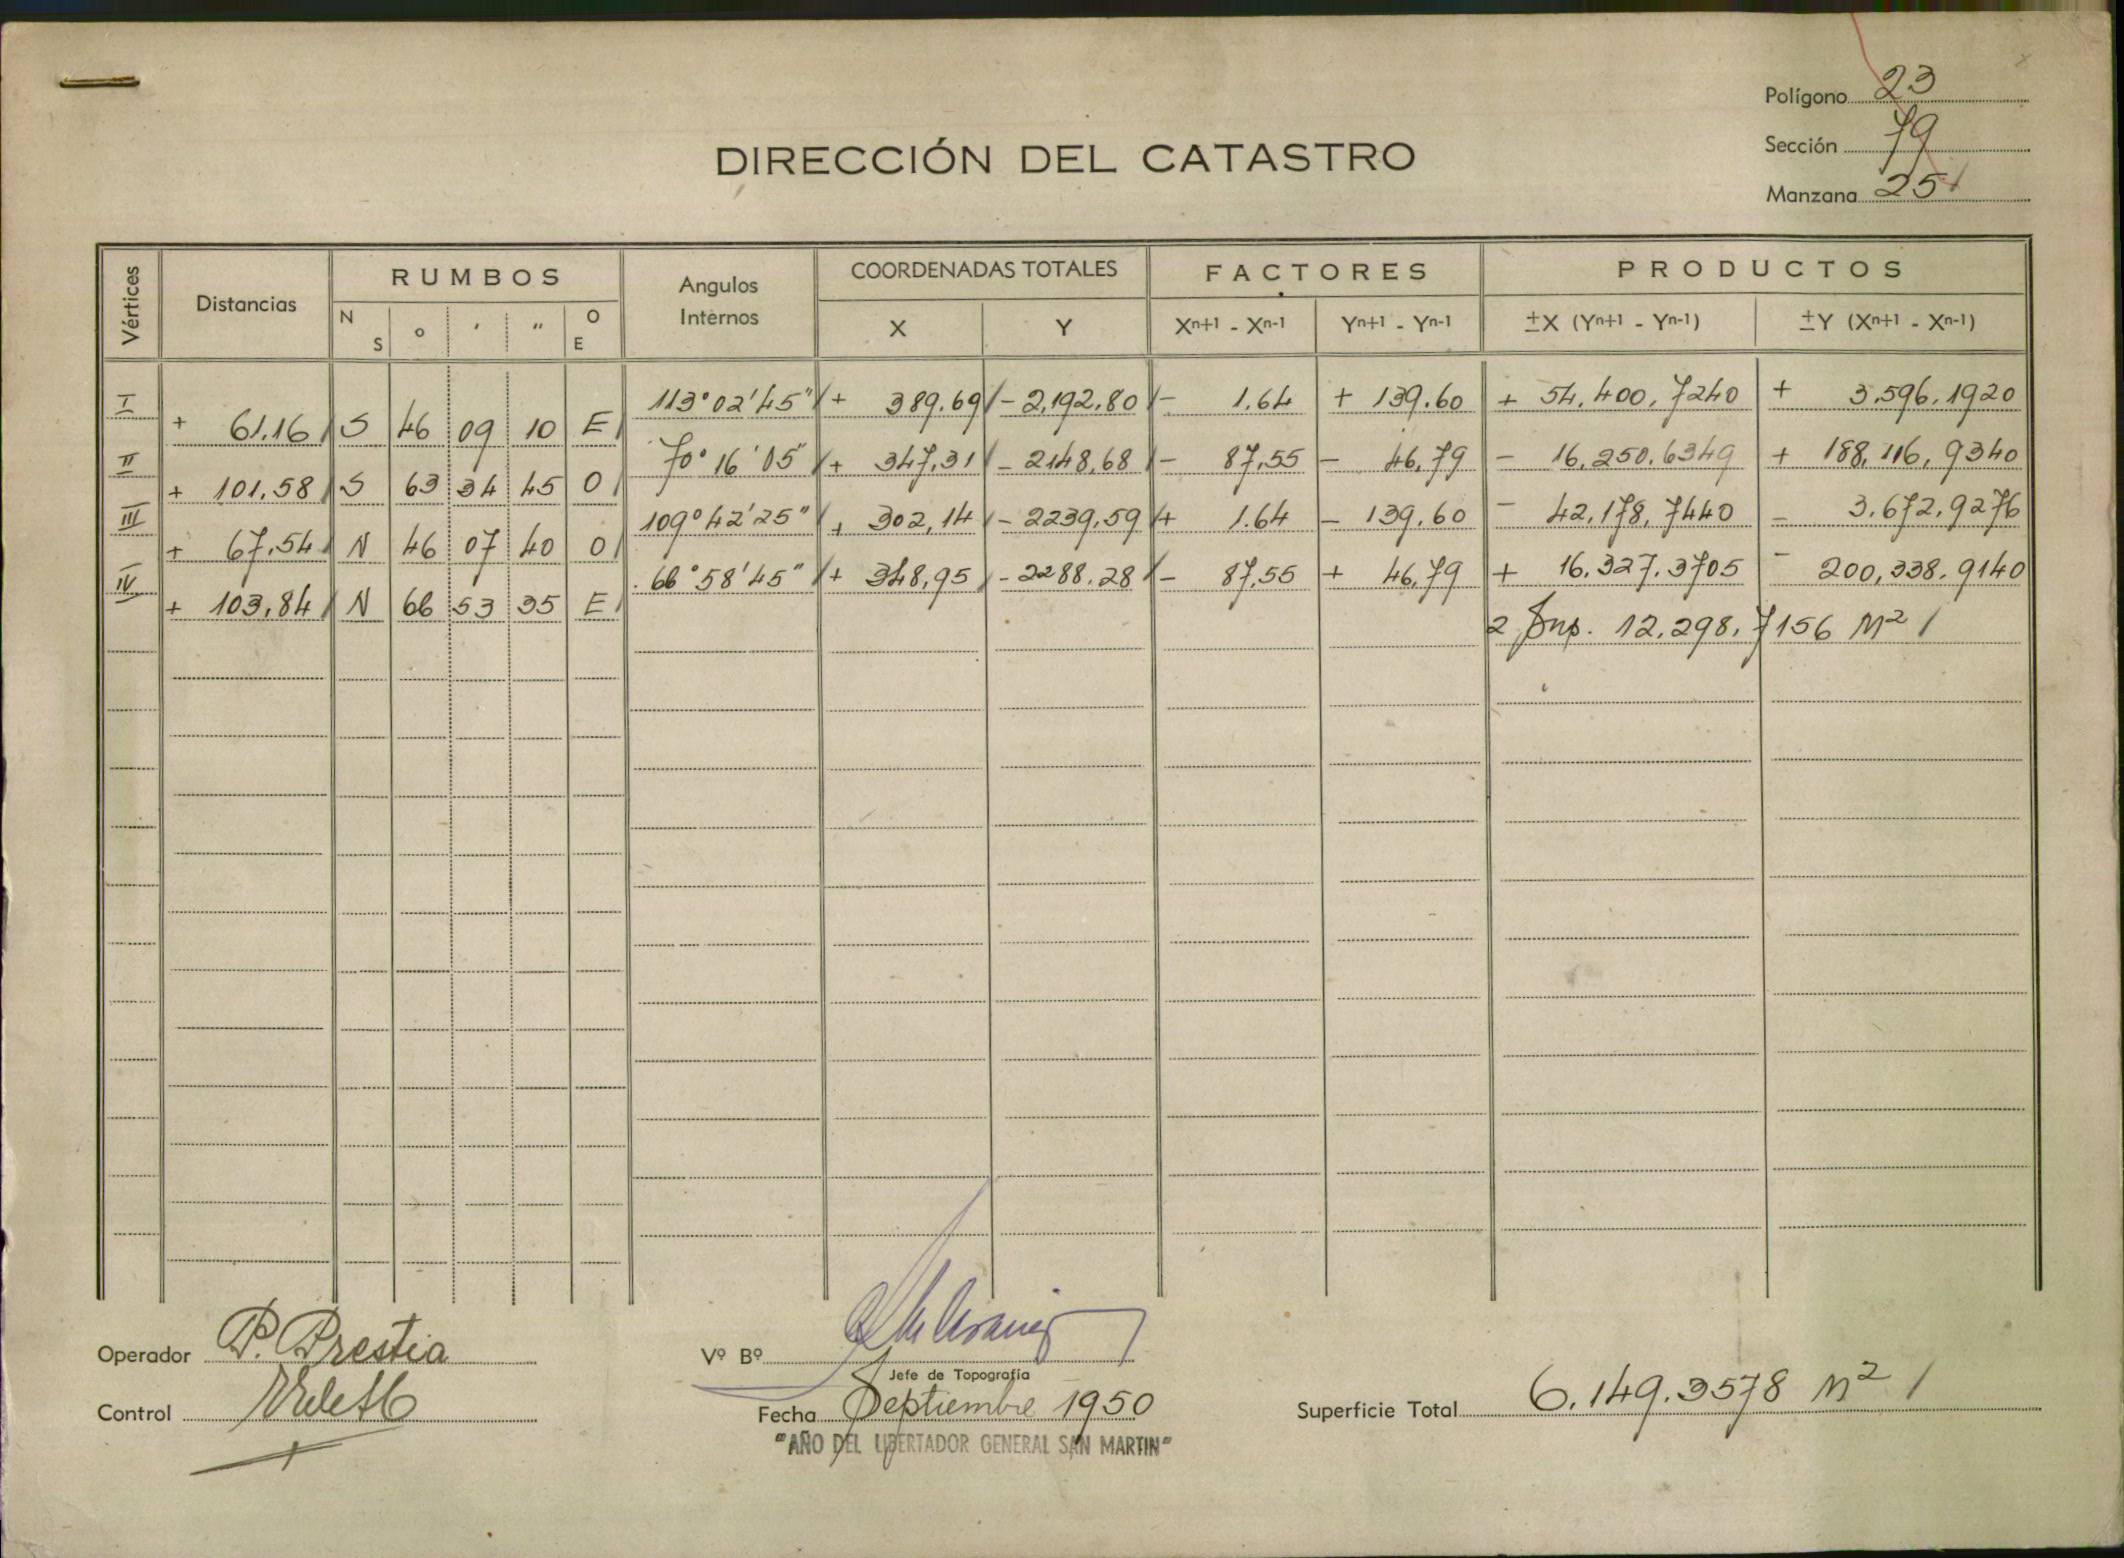 Polígono 23
Sección 79
Manzana 25
DIRECCIÓN DEL CATASTRO
Vértices Distancias RUMBOS Angulos Internos COORDENADAS TOTALES FACTORES PRODUCTOS
N S ° ′ ″ O E X Y Xn+1 - Xn-1 Yn+1 - Yn-1 ±X (Yn+1 - Yn-1) ±Y (Xn+1 - Xn-1)
I 113°02'45" + 389.69 - 2,192.80 - 1.64 + 139.60 + 54.400,7240 + 3.596,1920
+ 61.16 S 46 09 10 E
II 70°16'05" + 347,31 - 2148,68 - 87,55 - 46,79 - 16,250.6349 + 188,116,9340
+ 101,58 S 63 34 45 O
III 109°42'25" + 302,14 - 2239,59 + 1.64 - 139.60 - 42,178,7440 - 3.672,9276
+ 67,54 N 46 07 40 O
IV 66°58'45" + 348,95 - 2288.28 - 87,55 + 46,79 + 16.327.3705 - 200,338.9140
+ 103,84 N 66 53 35 E
2 Sup. 12.298,7156 M²
Operador P. Prestia
Vº Bº
Jefe de Topografía
Control
Fecha Septiembre 1950
Superficie Total 6.149.3578 M²
"AÑO DEL LIBERTADOR GENERAL SAN MARTIN"